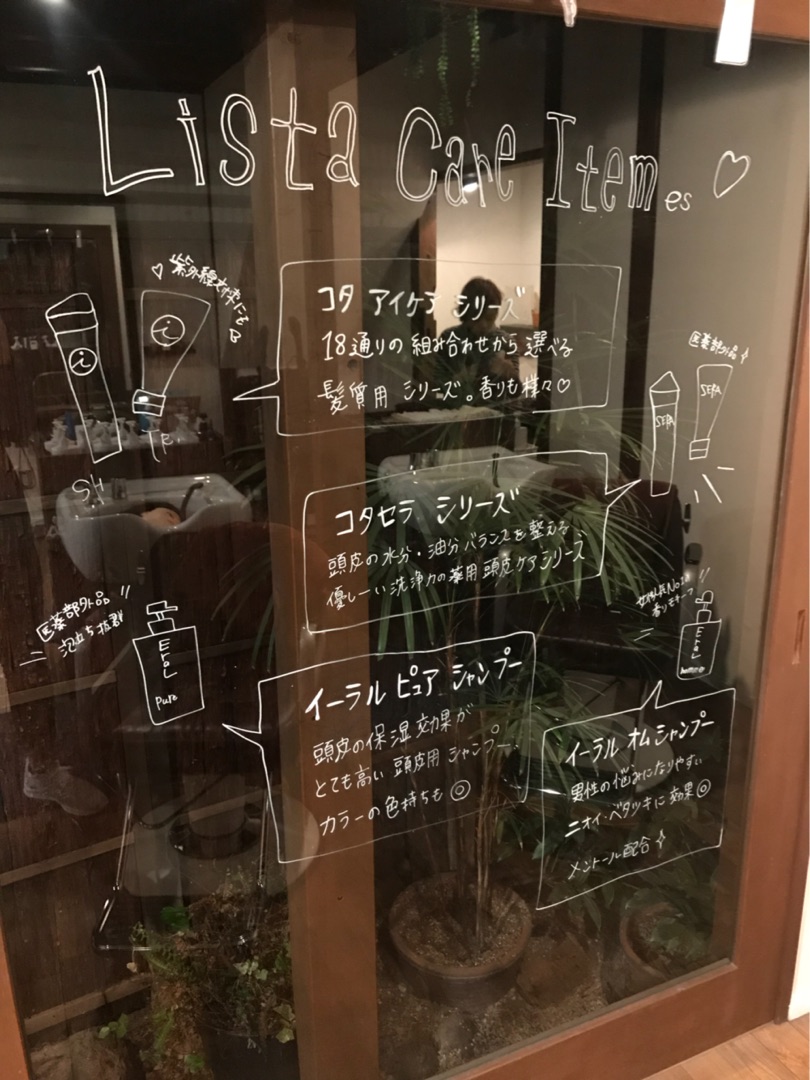 Lista Care Itemes ♡
♡紫外線対策にも
i
i
SH
Tr.
コタ アイケア シリーズ
18通りの組み合わせから選べる
髪質用シリーズ。香りも様々♡
医薬部外品
SERA
SERA
コタセラ シリーズ
頭皮の水分・油分バランスを整える、
優しーい洗浄力の薬用頭皮ケアシリーズ
医薬部外品!!
泡立ち抜群
Eral
Pure
イーラル ピュア シャンプー
頭皮の保湿効果が
とても高い頭皮用シャンプー、
カラーの色持ちも◎
香りモチーフ
Eral
homme
イーラル オム シャンプー
男性の悩みになりやすい
ニオイ・ベタツキに効果◎
メントール配合